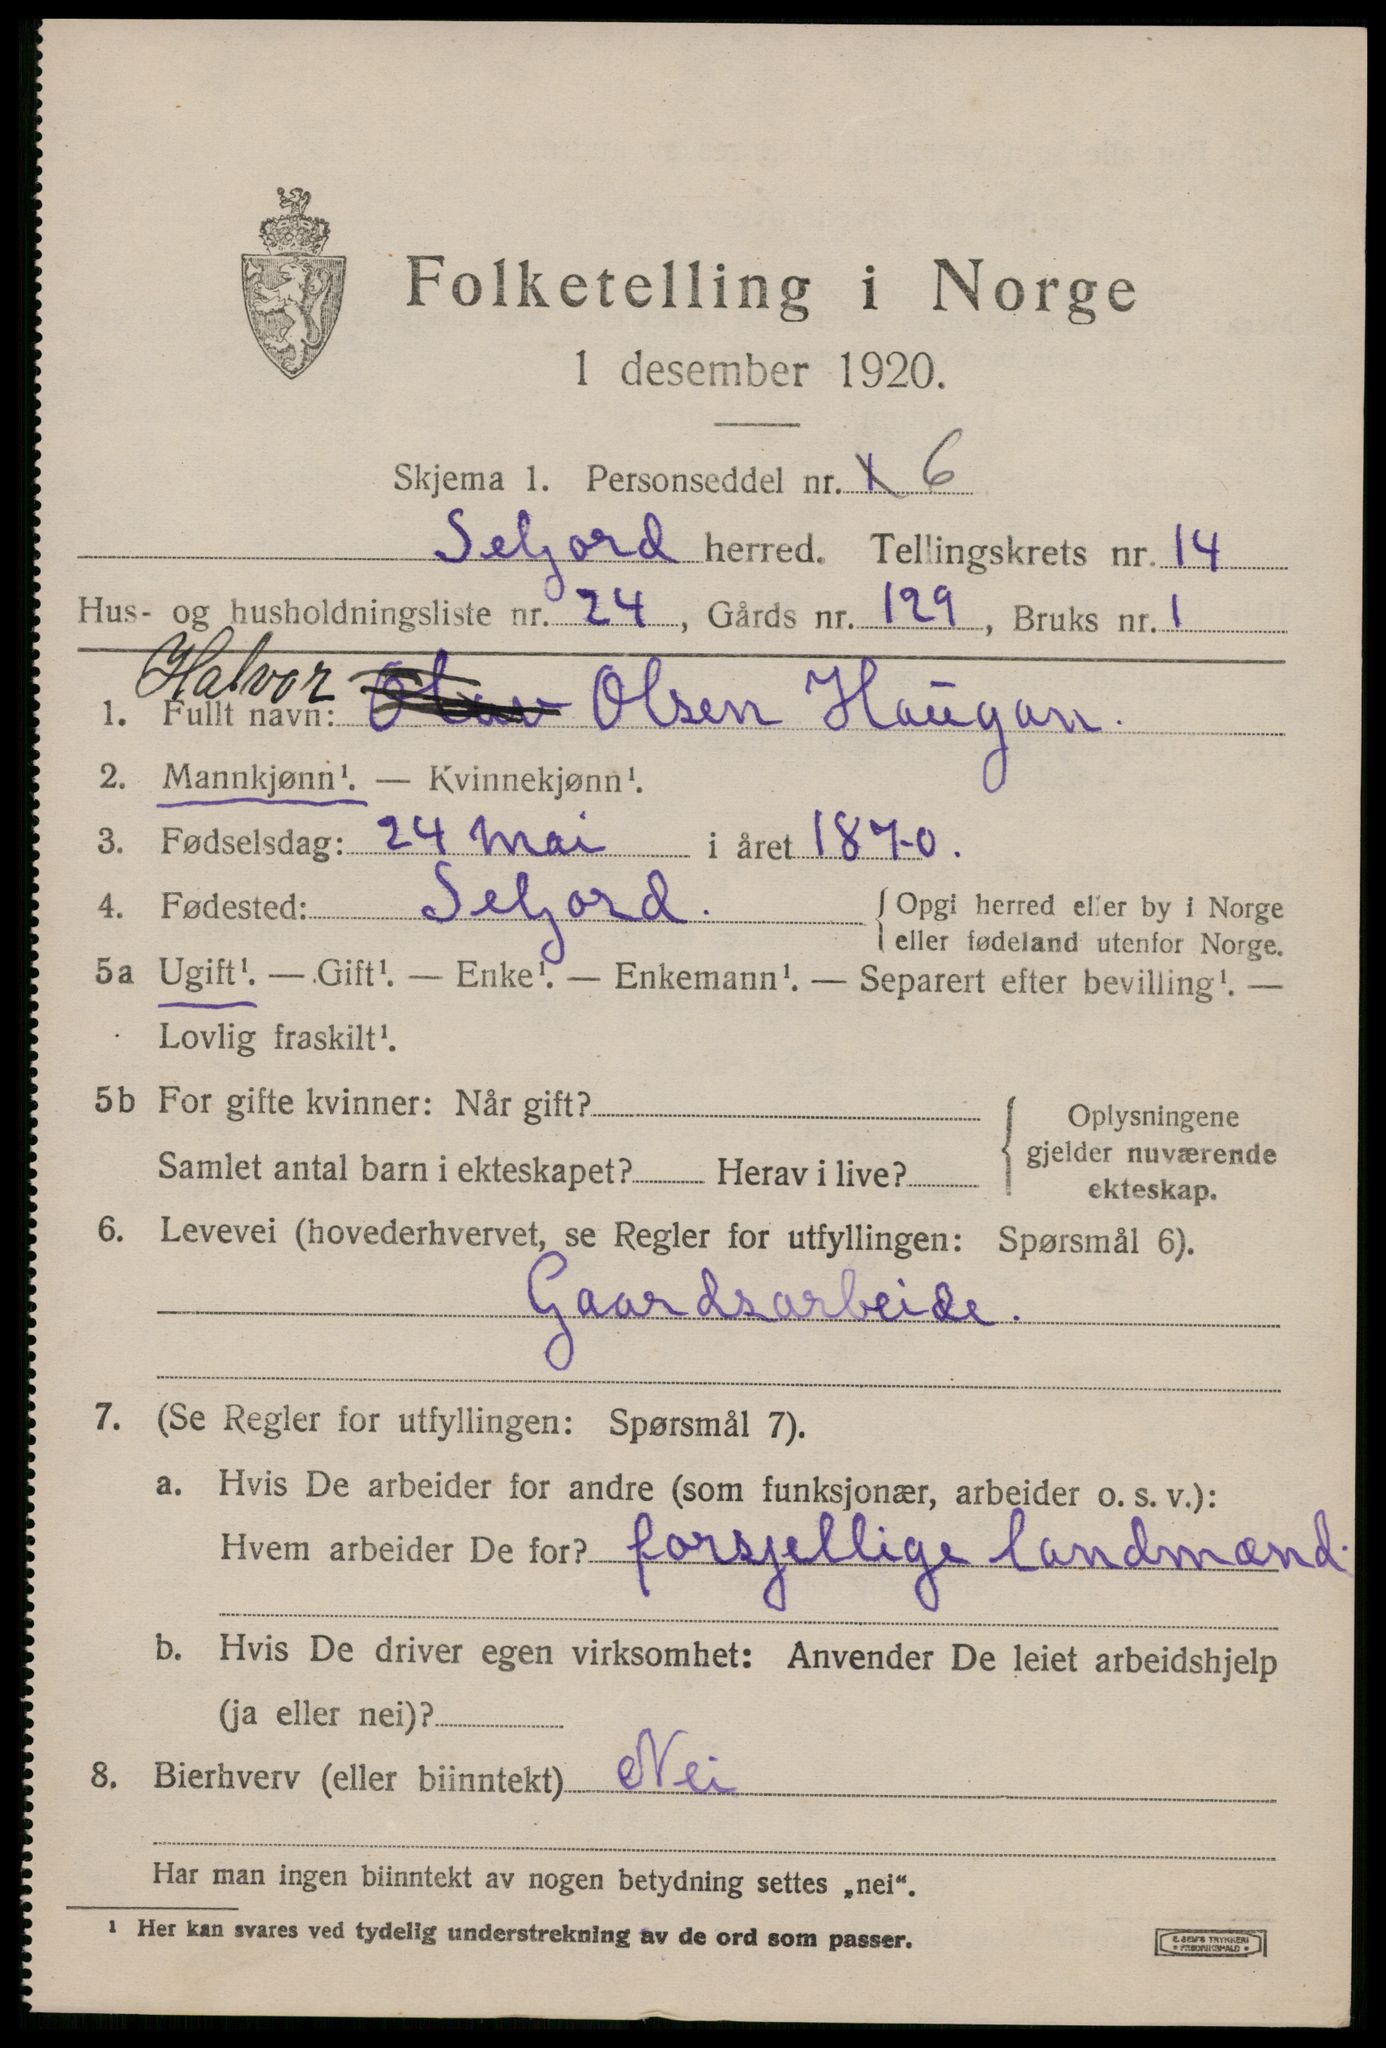 Folketelling i Norge
1 desember 1920.
Skjema 1. Personseddel nr. 6
Seljord herred. Tellingskrets nr. 14
Hus- og husholdningsliste nr. 24, Gårds nr. 129, Bruks nr. 1
Halvor
1. Fullt navn: Olav Olsen Haugan.
2. Mannkjønn¹. — Kvinnekjønn¹.
3. Fødselsdag: 24 mai i året 1870.
4. Fødested: Seljord. { Opgi herred eller by i Norge
eller fødeland utenfor Norge.
5a Ugift¹. — Gift¹. — Enke¹. — Enkemann¹. — Separert efter bevilling¹. —
Lovlig fraskilt¹.
5b For gifte kvinner: Når gift? { Oplysningene
gjelder nuværende
Samlet antal barn i ekteskapet? Herav i live?
ekteskap.
6. Levevei (hovederhvervet, se Regler for utfyllingen: Spørsmål 6).
Gaardsarbeide.
7. (Se Regler for utfyllingen: Spørsmål 7).
a. Hvis De arbeider for andre (som funksjonær, arbeider o. s. v.):
Hvem arbeider De for? forsjellige landmænd.
b. Hvis De driver egen virksomhet: Anvender De leiet arbeidshjelp
(ja eller nei)?
8. Bierhverv (eller biinntekt) Nei
Har man ingen biinntekt av nogen betydning settes „nei“.
¹ Her kan svares ved tydelig understrekning av de ord som passer.